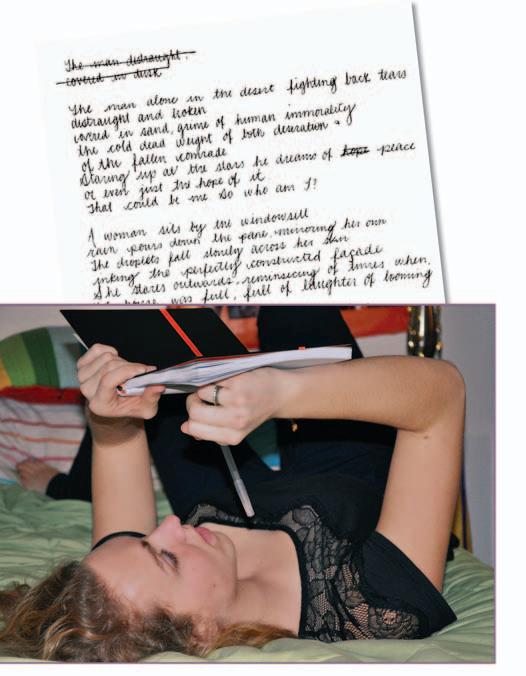 The man distraught.
covered in dusk
The man alone in the desert fighting back tears
distraught and broken
covered in sand, grime of human immorality
the cold dead weight of both desecration &
of the fallen comrade
Staring up at the stars he dreams of hope peace
or even just the hope of it
That could be me so who am I?
A woman sits by the windowsill
rain pours down the pane, mirroring her own
The droplets fall slowly across her skin
inking the perfectly constructed facade
She stares outwards, reminiscing of times when,
house was full, full of laughter of looming